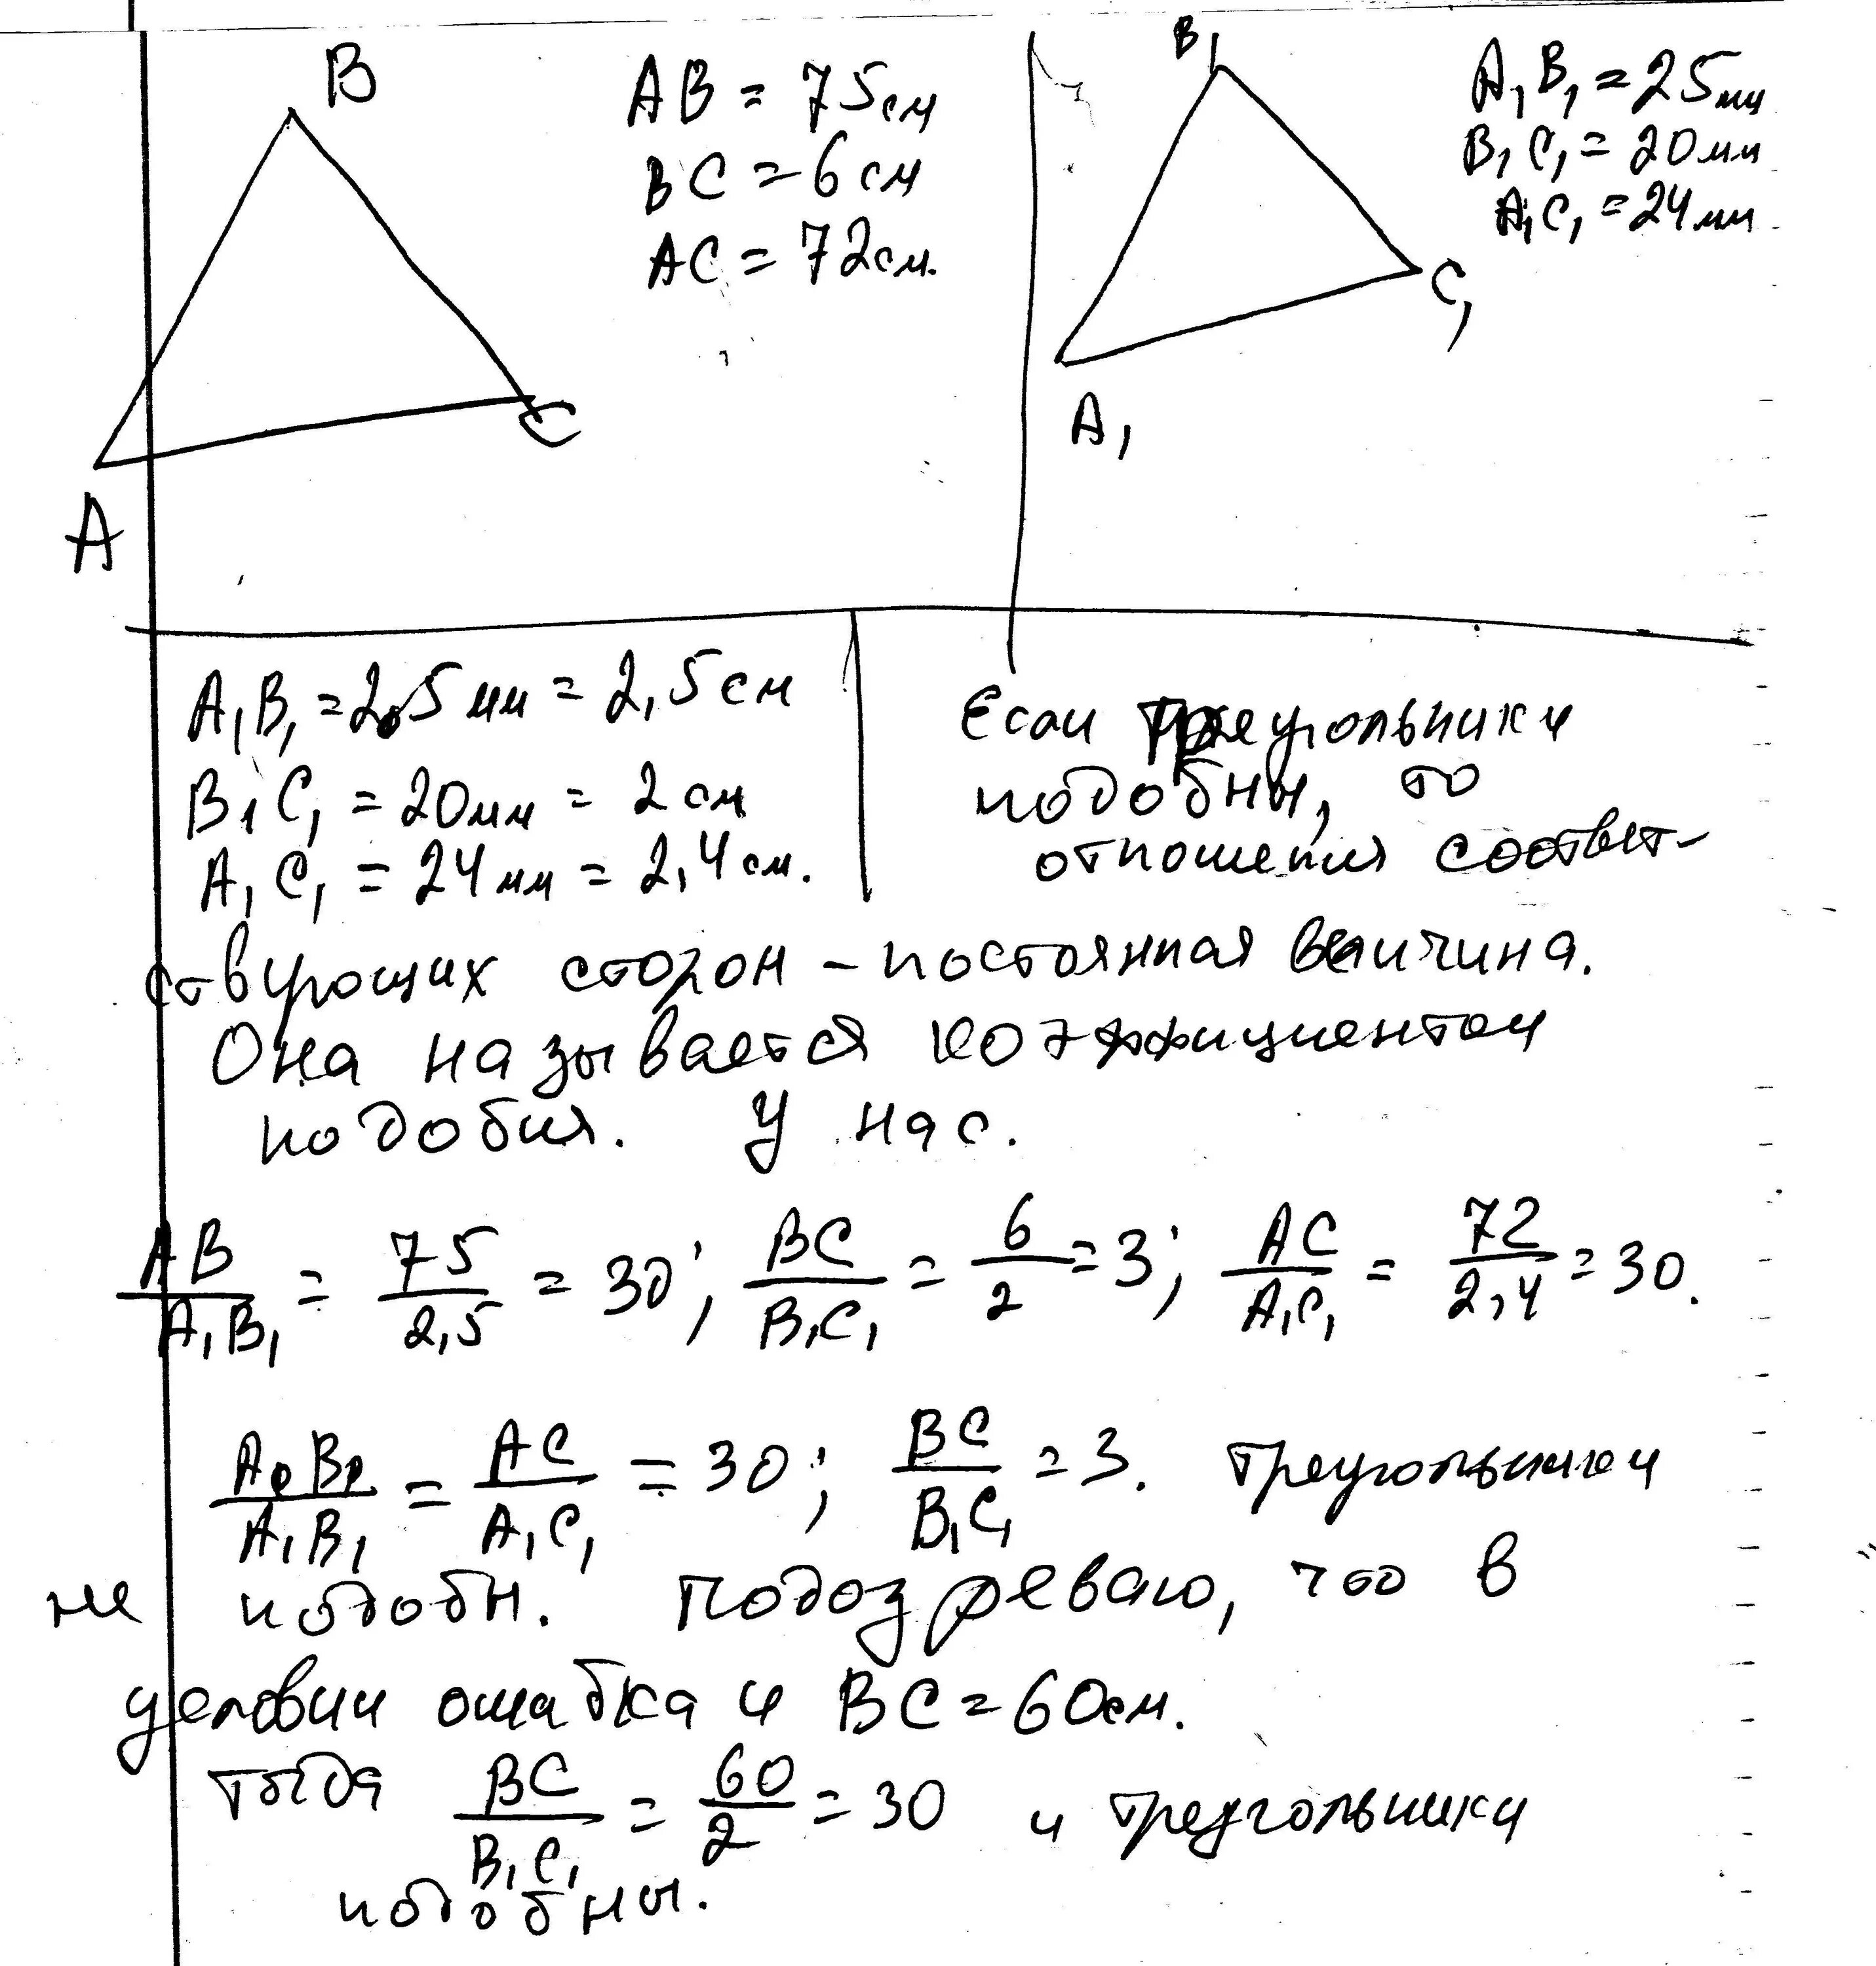 B
AB = 75см
BC = 6см
AC = 72см.
A
C
B₁
A₁B₁ = 25мм
B₁C₁ = 20мм
A₁C₁ = 24мм
C₁
A₁
A₁B₁ = 25мм = 2,5см
B₁C₁ = 20мм = 2см
A₁C₁ = 24мм = 2,4см.
Если треугольники
подобны, то
отношения соответ-
ствующих сторон - постоянная величина.
Она называется коэффициентом
подобия. У нас.
AB/A₁B₁ = 75/2,5 = 30; BC/B₁C₁ = 6/2 = 3; AC/A₁C₁ = 72/2,4 = 30.
AB/A₁B₁ = AC/A₁C₁ = 30; BC/B₁C₁ = 3. Треугольники
не подобн. Подозреваю, что в
условии ошибка и BC = 60см.
Тогда BC/B₁C₁ = 60/2 = 30 и треугольники
подобны.